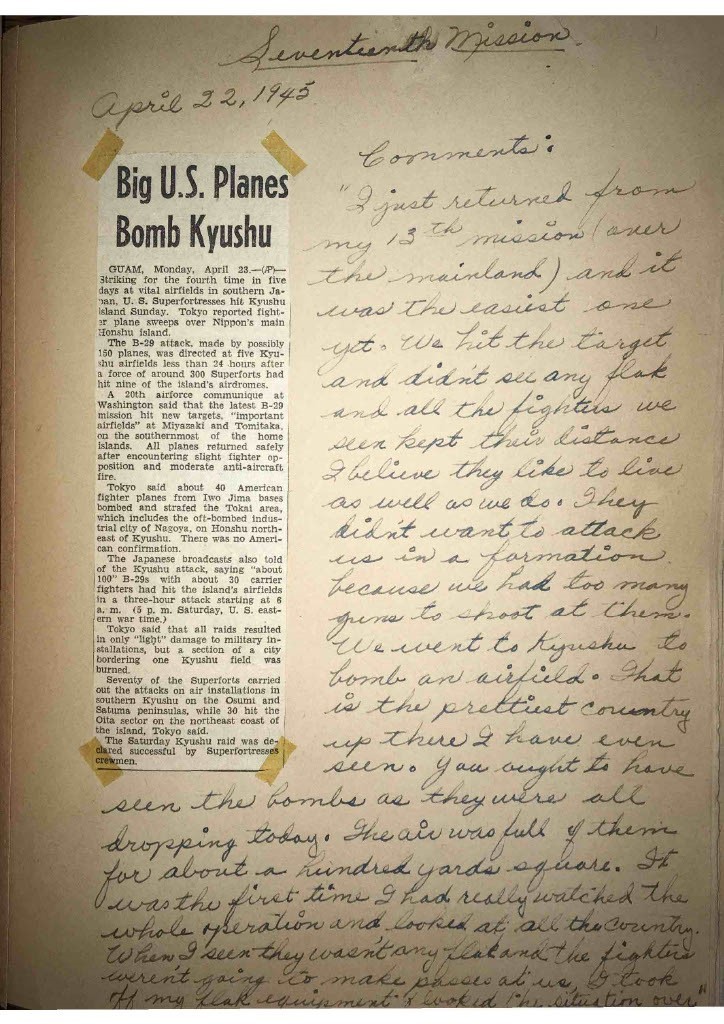 Seventeenth Mission
April 22, 1945
Big U.S. Planes
Bomb Kyushu
GUAM, Monday, April 23.—(AP)—
Striking for the fourth time in five
days at vital airfields in southern Ja-
pan, U. S. Superfortresses hit Kyushu
island Sunday. Tokyo reported fight-
er plane sweeps over Nippon's main
Honshu island.
The B-29 attack, made by possibly
150 planes, was directed at five Kyu-
shu airfields less than 24 hours after
a force of around 300 Superforts had
hit nine of the island's airdromes.
A 20th airforce communique at
Washington said that the latest B-29
mission hit new targets, "important
airfields" at Miyazaki and Tomitaka,
on the southernmost of the home
islands. All planes returned safely
after encountering slight fighter op-
position and moderate anti-aircraft
fire.
Tokyo said about 40 American
fighter planes from Iwo Jima bases
bombed and strafed the Tokai area,
which includes the oft-bombed indus-
trial city of Nagoya, on Honshu north-
east of Kyushu. There was no Ameri-
can confirmation.
The Japanese broadcasts also told
of the Kyushu attack, saying "about
100" B-29s with about 30 carrier
fighters had hit the island's airfields
in a three-hour attack starting at 6
a. m. (5 p. m. Saturday, U. S. east-
ern war time.)
Tokyo said that all raids resulted
in only "light" damage to military in-
stallations, but a section of a city
bordering one Kyushu field was
burned.
Seventy of the Superforts carried
out the attacks on air installations in
southern Kyushu on the Osumi and
Satuma peninsulas, while 30 hit the
Oita sector on the northeast coast of
the island, Tokyo said.
The Saturday Kyushu raid was de-
clared successful by Superfortresses
crewmen.
Comments:
"I just returned from
my 13th mission (over
the mainland) and it
was the easiest one
yet. We hit the target
and didn't see any flak
and all the fighters we
seen kept their distance
I believe they like to live
as well as we do. They
didn't want to attack
us in a formation
because we had too many
guns to shoot at them.
We went to Kyushu to
bomb an airfield. That
is the prettiest country
up there I have even
seen. You ought to have
seen the bombs as they were all
dropping today. The air was full of them
for about a hundred yards square. It
was the first time I had really watched the
whole operation and looked at all the country.
When I seen they wasn't any flak and the fighters
weren't going to make passes at us, I took
off my flak equipment & looked the situation over"